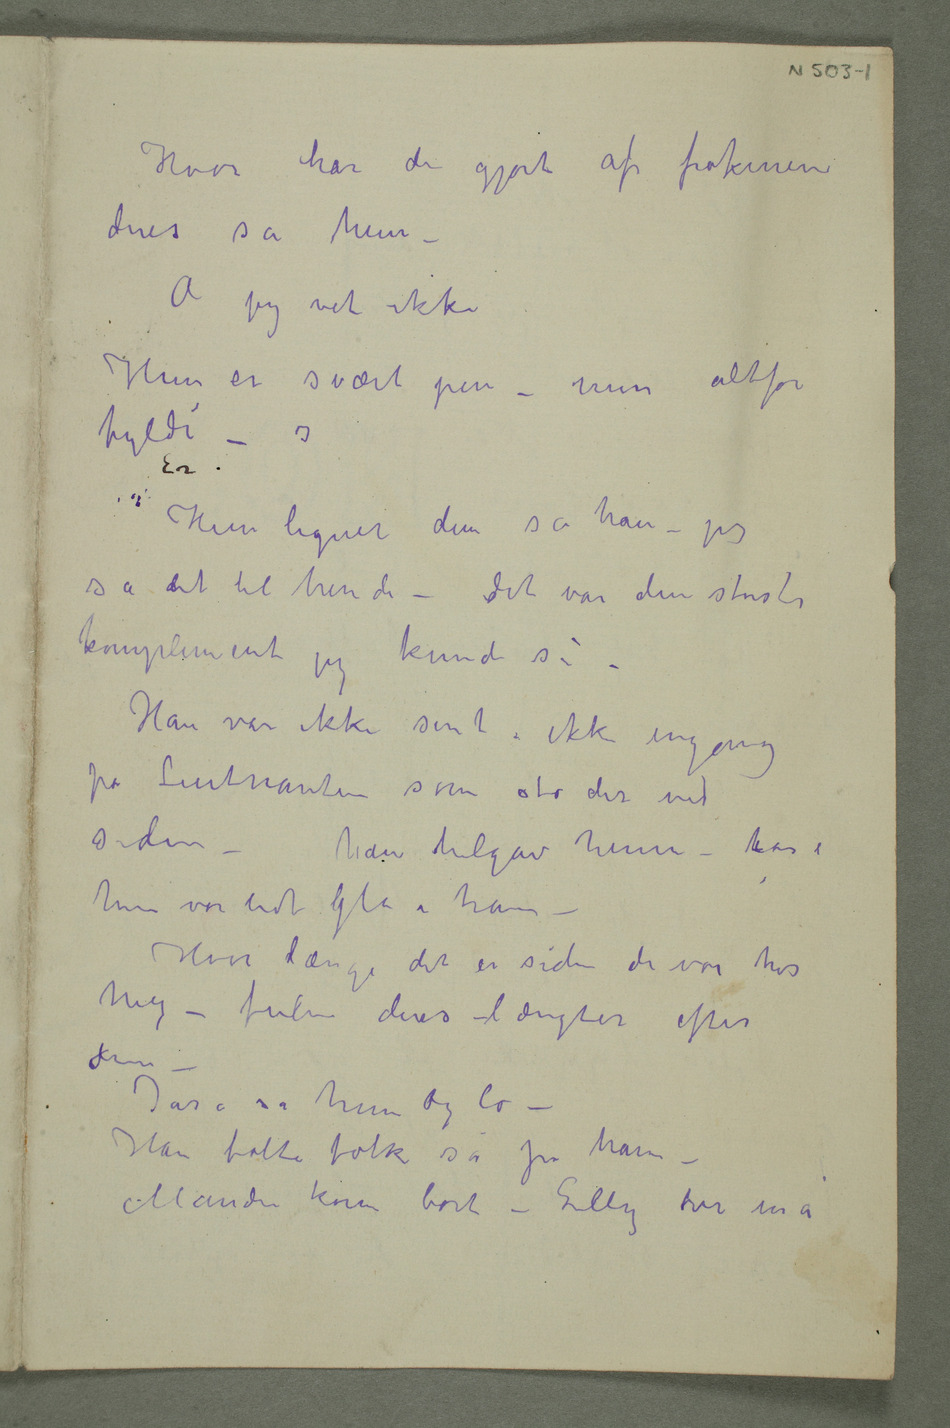 N 503-1
Hvor har de gjort af frøkenen
deres sa hun –
A jeg vet ikke
Hun er svært pen – men altfor
fyldi –
Er
Hun ligner dem sa han – jeg
sa det til hende – det var den største
kompliment jeg kunde si –
Han var ikke sint – ikke engang
på Løitnanten som sto der ved
siden – han tilgav henne –
hun var lidt gla i ham –
Hvor længe det er siden de var hos
mig – fulen deres længter efter
dem –
Jasa sa hun og lo –
Han følte folk så på ham –
Manden kom bort – Lilly